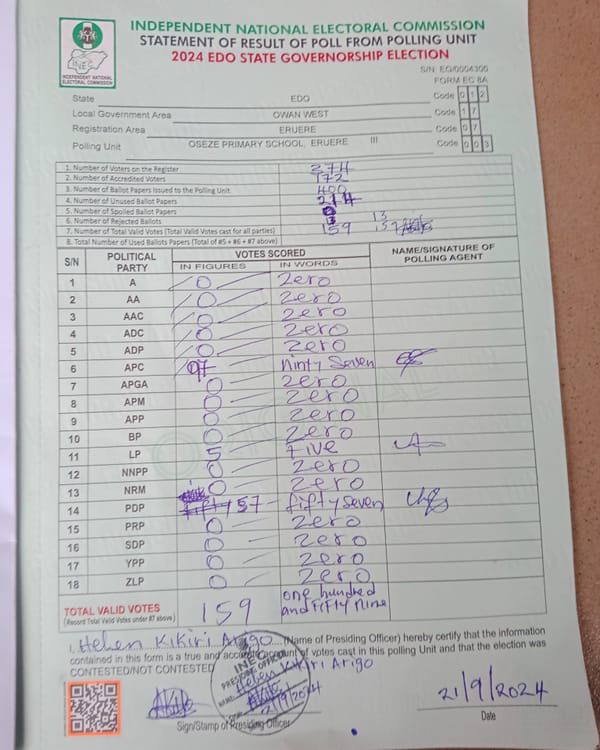 INDEPENDENT NATIONAL ELECTORAL COMMISSION
STATEMENT OF RESULT OF POLL FROM POLLING UNIT
2024 EDO STATE GOVERNORSHIP ELECTION
INEC
INDEPENDENT NATIONAL ELECTORAL COMMISSION
S/N EG/0004300
FORM EC 8A
State EDO Code 0 1 2
Local Government Area OWAN WEST Code 1 7
Registration Area ERUERE Code 0 7
Polling Unit OSEZE PRIMARY SCHOOL, ERUERE III Code 0 0 3
1. Number of Voters on the Register 274
2. Number of Accredited Voters 172
3. Number of Ballot Papers Issued to the Polling Unit 400
4. Number of Unused Ballot Papers
5. Number of Spoiled Ballot Papers
6. Number of Rejected Ballots 13
7. Number of Total Valid Votes (Total Valid Votes cast for all parties) 159
8. Total Number of Used Ballots Papers (Total of #5 + #6 + #7 above)
S/N POLITICAL PARTY VOTES SCORED NAME/SIGNATURE OF POLLING AGENT
IN FIGURES IN WORDS
1 A 0 Zero
2 AA 0 Zero
3 AAC 0 Zero
4 ADC 0 Zero
5 ADP 0 Zero
6 APC 97 Ninty Seven
7 APGA 0 Zero
8 APM 0 Zero
9 APP 0 Zero
10 BP 0 Zero
11 LP 5 Five
12 NNPP 0 Zero
13 NRM 0 Zero
14 PDP 57 fifty seven
15 PRP 0 Zero
16 SDP 0 Zero
17 YPP 0 Zero
18 ZLP 0 Zero
TOTAL VALID VOTES 159 one hundred and Fifty Nine
(Record Total Valid Votes under #7 above)
I, Helen Kikiri Arigo (Name of Presiding Officer) hereby certify that the information
contained in this form is a true and accurate account of votes cast in this polling Unit and that the election was
CONTESTED/NOT CONTESTED
INEC
PRESIDING OFFICER
NAME Helen Kikiri Arigo
21/9/2024
Sign/Stamp of Presiding Officer
21/9/2024
Date